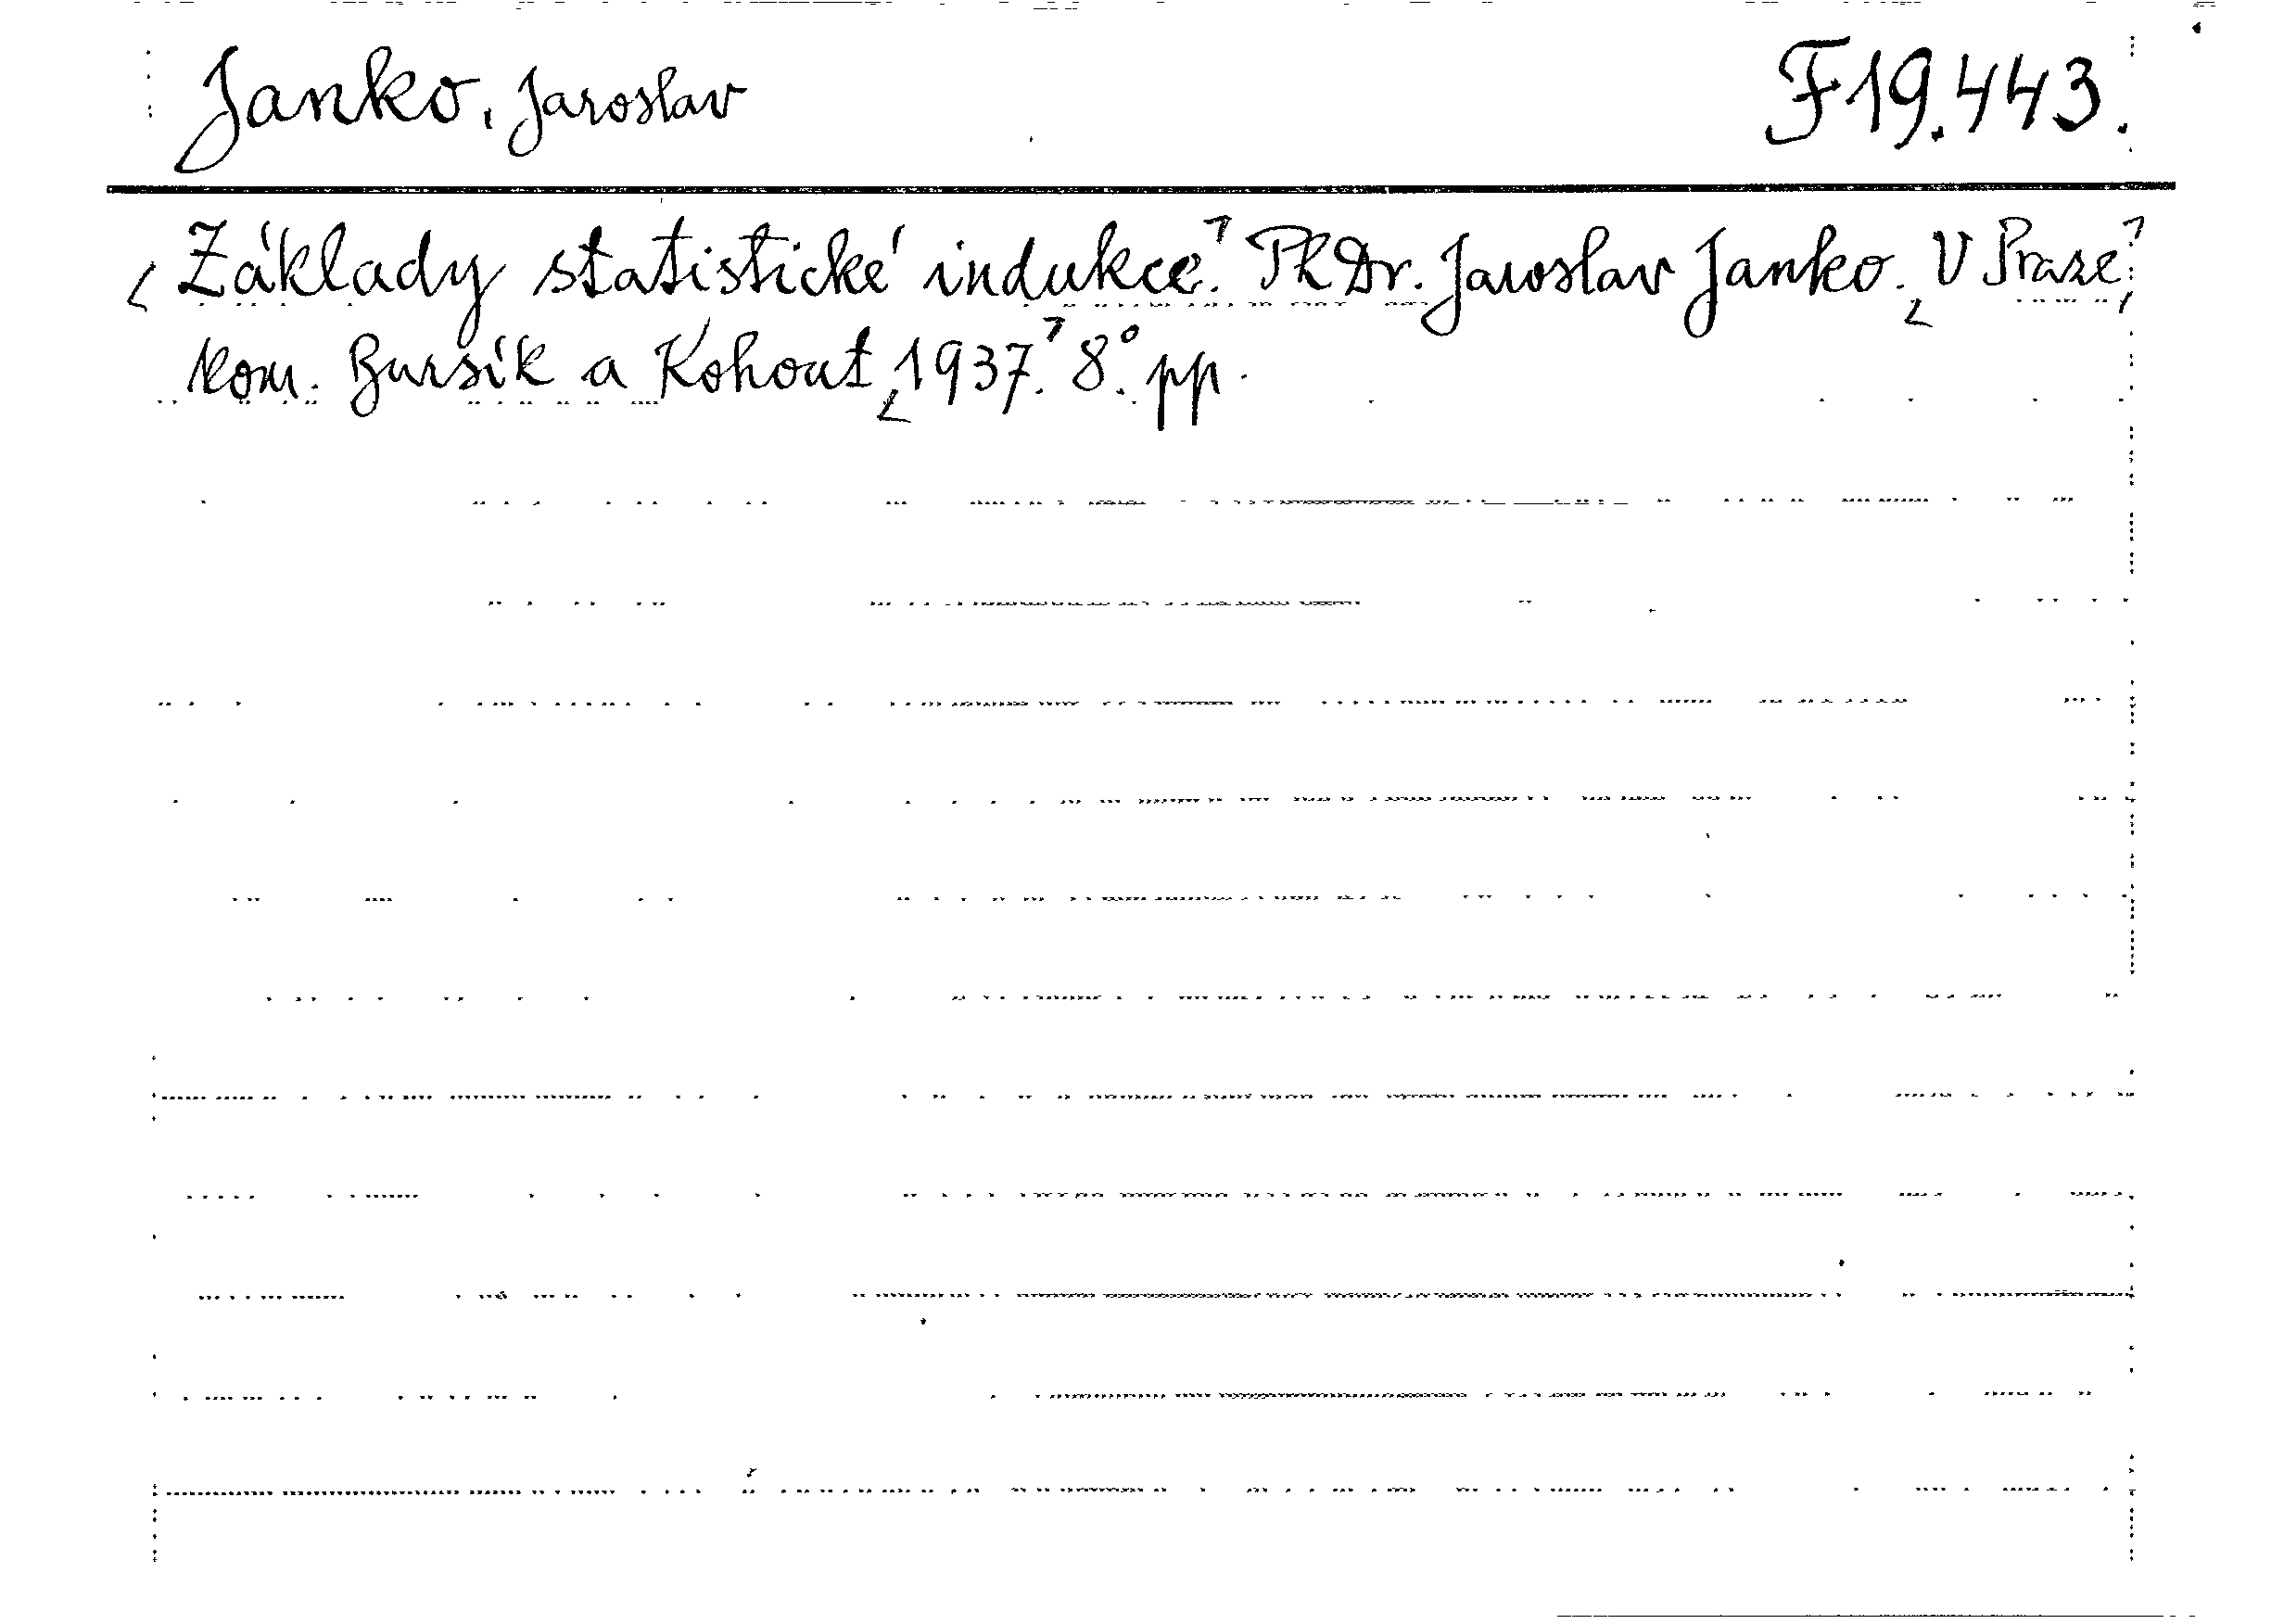 Janko, Jaroslav F19.443.
Základy statistické indukce. PhDr. Jaroslav Janko. V Praze,
kom. Bursík a Kohout, 1937. 8°. pp.